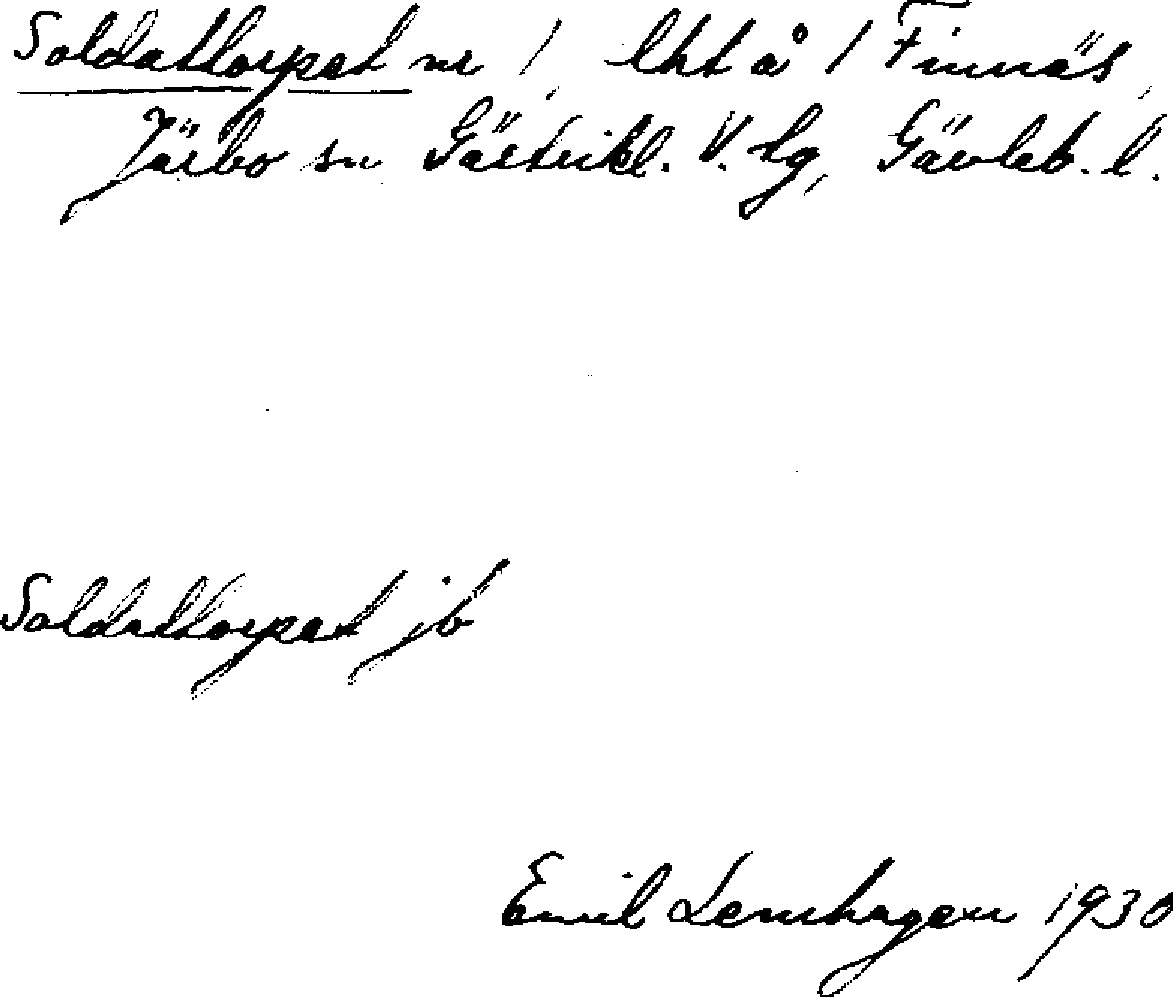 Soldattorpet nr 1, lht å 1 Finnäs,
Järbo sn Gästrikl. V. tg, Gävleb. l.
Soldattorpet jb
Emil Lennhagen 1930